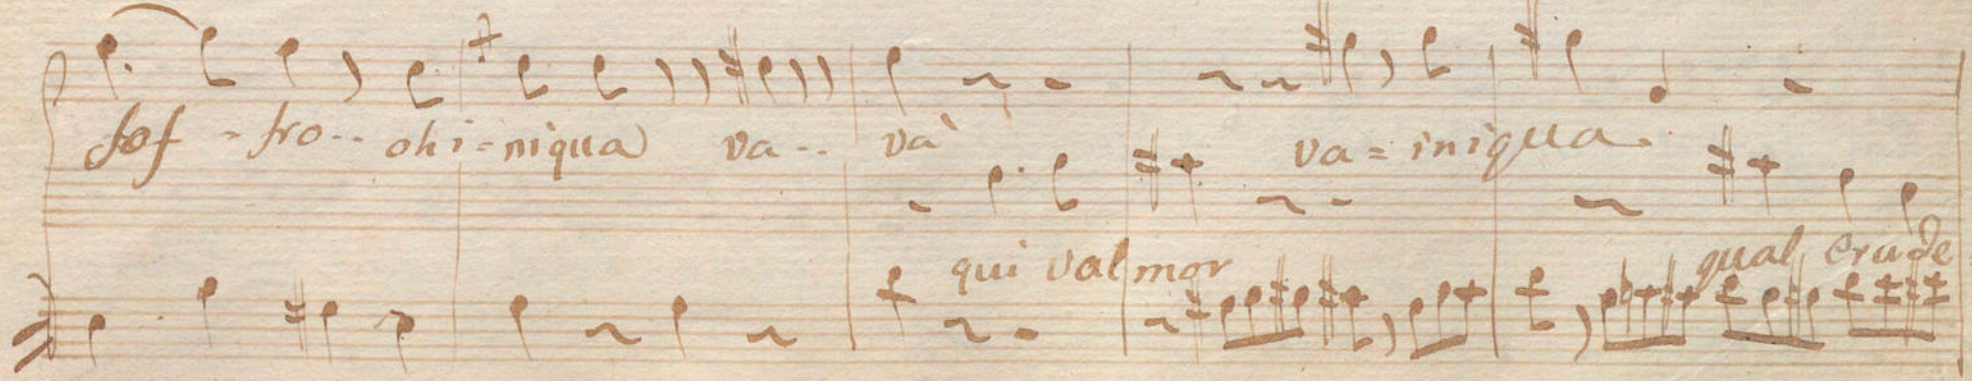 sof - fro -- oh i = niqua va -- và va = iniqua.
qui val mor qual crude